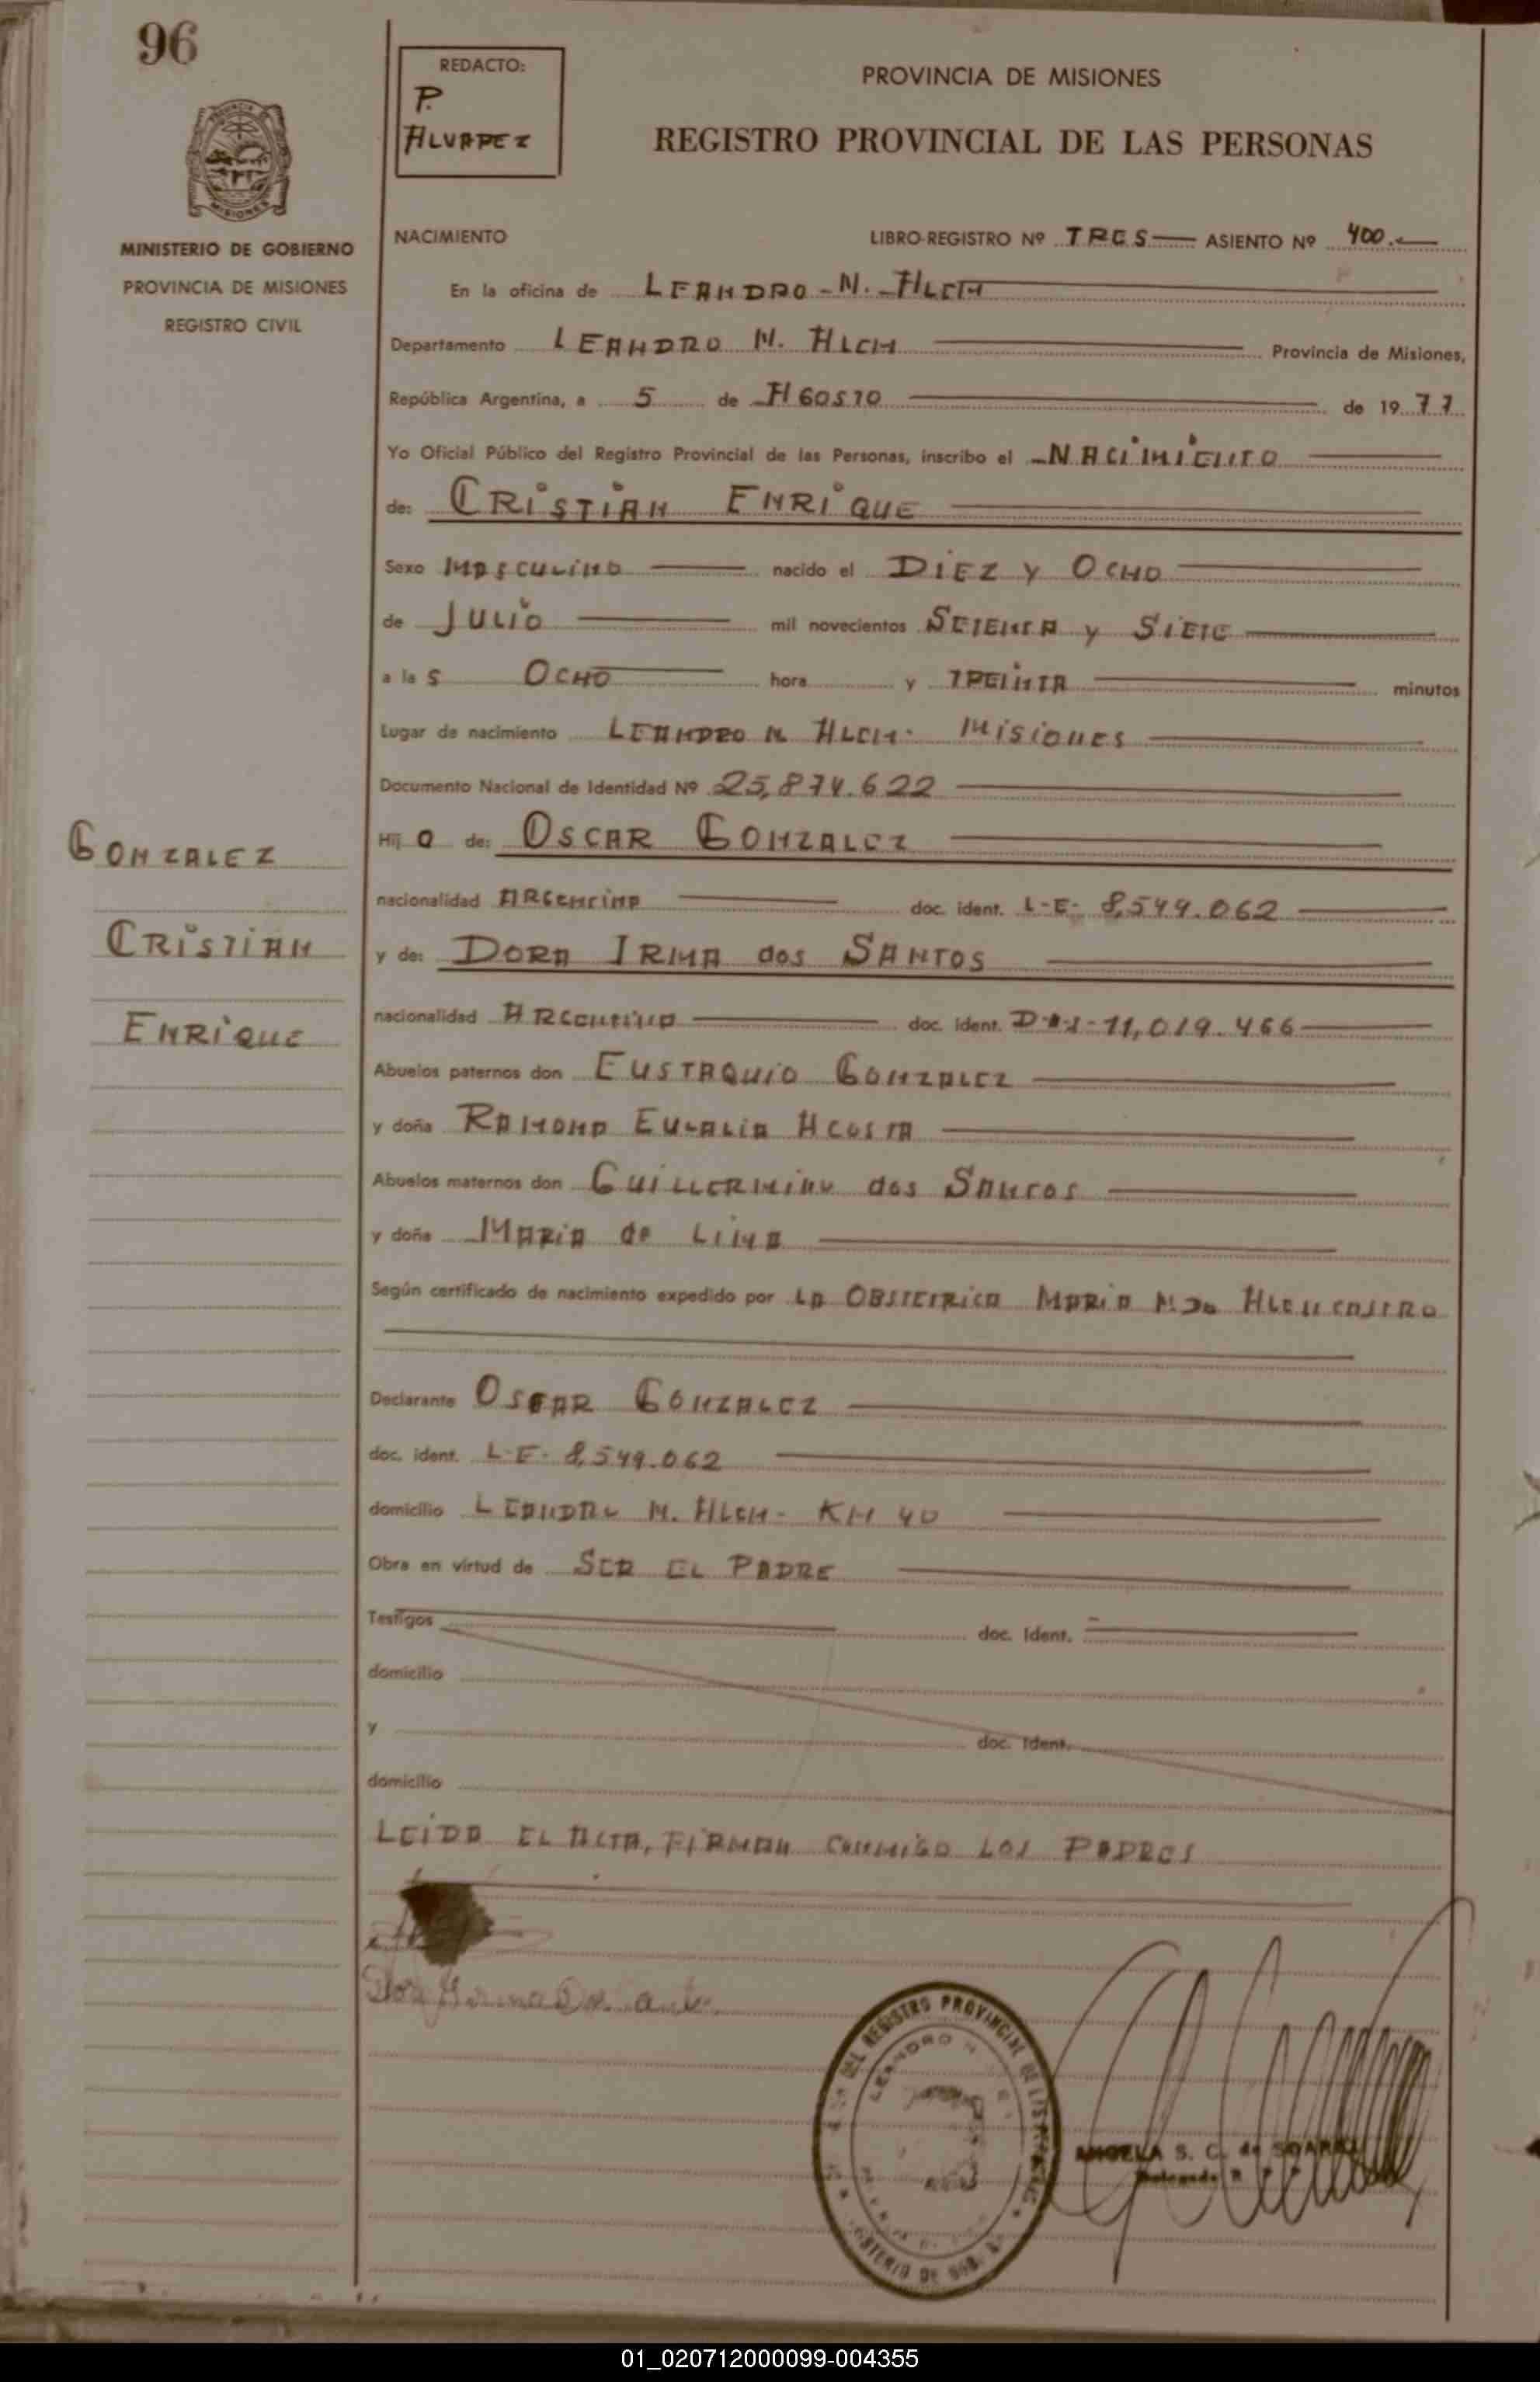 96
REDACTO:
P.
ALVAREZ
PROVINCIA DE MISIONES
REGISTRO PROVINCIAL DE LAS PERSONAS
MISIONES
MINISTERIO DE GOBIERNO
PROVINCIA DE MISIONES
REGISTRO CIVIL
NACIMIENTO
LIBRO-REGISTRO Nº TRES ASIENTO Nº 400.
En la oficina de LEANDRO - N. - ALEM
Departamento LEANDRO N. ALEM Provincia de Misiones,
República Argentina, a 5 de AGOSTO de 1977
Yo Oficial Público del Registro Provincial de las Personas, inscribo el NACIMIENTO
de: CRISTIAN ENRIQUE
Sexo MASCULINO nacido el DIEZ Y OCHO
de JULIO mil novecientos SETENTA y SIETE
a las OCHO hora y TREINTA minutos
Lugar de nacimiento LEANDRO N. ALEM - MISIONES
Documento Nacional de Identidad Nº 25.874.622
Hijo de: OSCAR GONZALEZ
nacionalidad ARGENTINA doc. ident. L-E- 8.549.062
y de: DORA IRMA dos SANTOS
nacionalidad ARGENTINA doc. ident. D-N-I- 11.019.466
Abuelos paternos don EUSTAQUIO GONZALEZ
y doña RAMONA EULALIA ACOSTA
Abuelos maternos don GUILLERMINO dos SANTOS
y doña MARIA de LIMA
Según certificado de nacimiento expedido por LA OBSTETRICA MARIA ALENCASTRO
Declarante OSCAR GONZALEZ
doc. ident. L-E- 8.549.062
domicilio LEANDRO N. ALEM - KM 40
Obra en virtud de SER EL PADRE
Testigos doc. ident.
domicilio
y doc. ident.
domicilio
LEIDA EL ACTA, FIRMAN CONMIGO LOS PADRES
GONZALEZ
CRISTIAN
ENRIQUE
DEL REGISTRO PROVINCIAL DE LAS PERSONAS
LEANDRO N.
ANGELA S. C. de
01_020712000099-004355